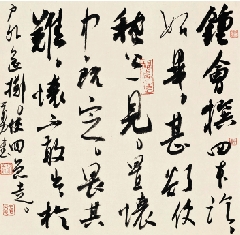 鍾會撰四本論
始畢甚欲使
嵇公一見置懷
中既定畏其
難懷不敢出於
戶外遙擲便回急走